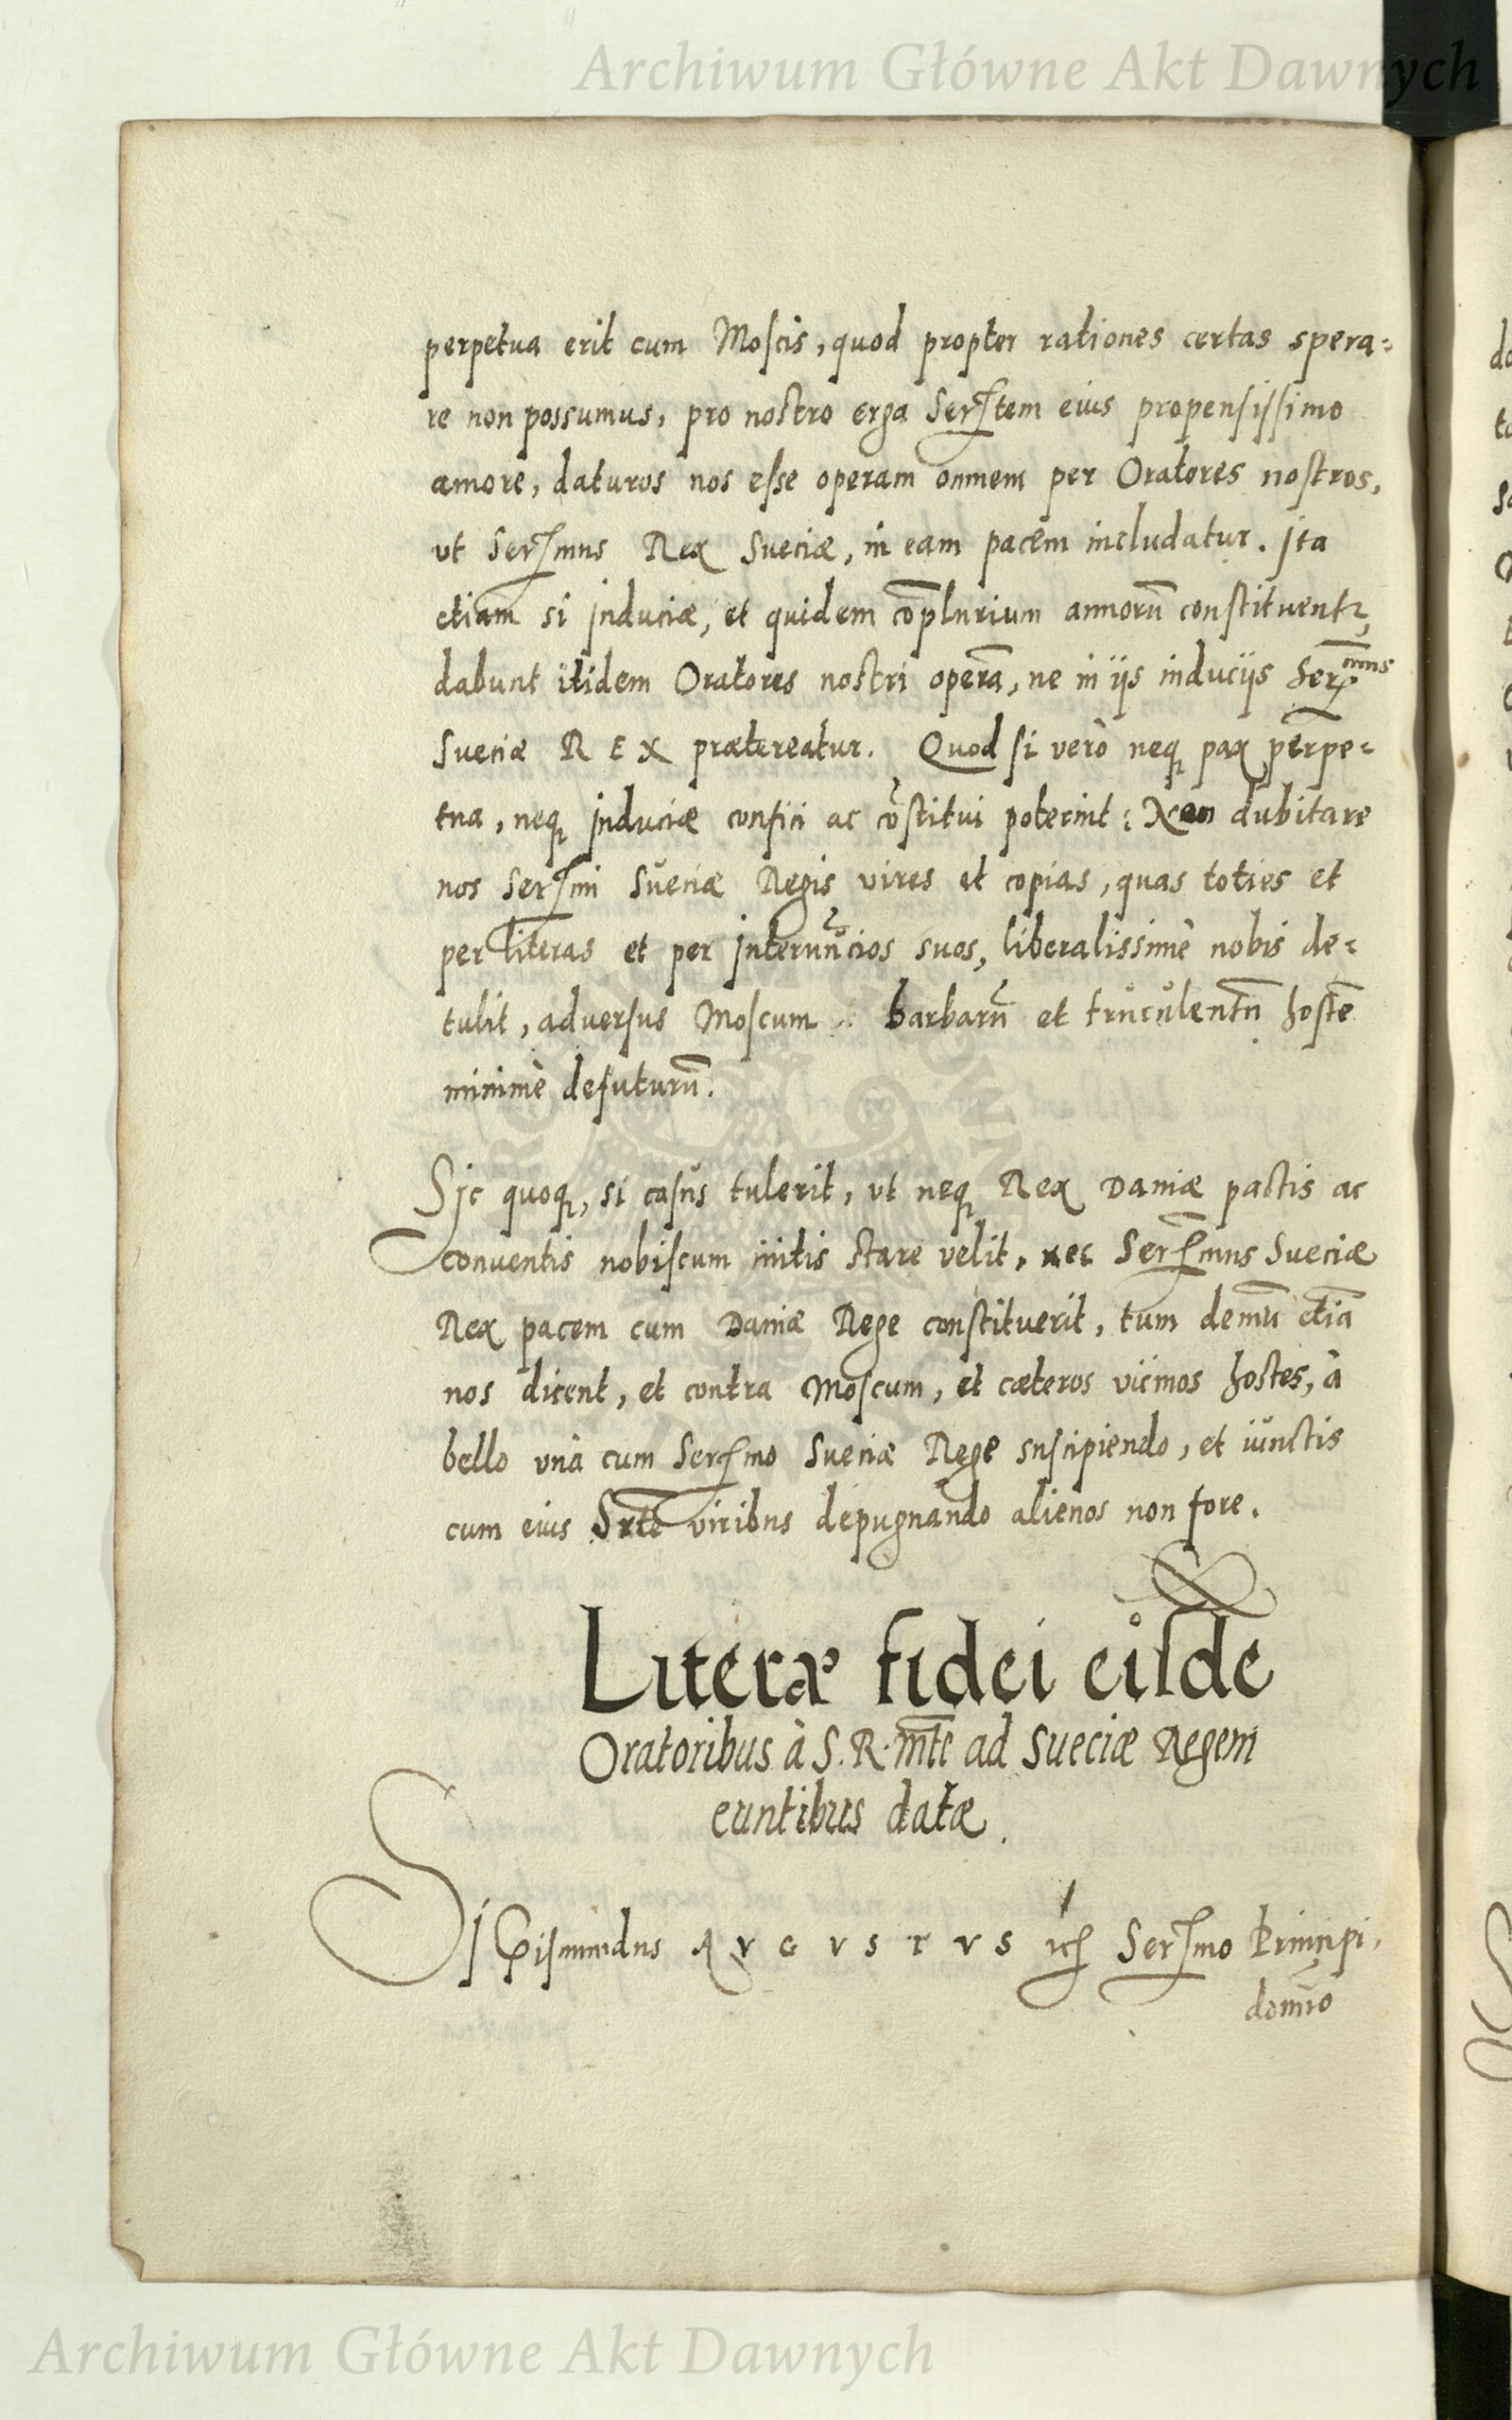 Archiwum Główne Akt Dawnych
perpetua erit cum Moscis, quod propter rationes certas spera=
re non possumus, pro nostro erga Serstem eius propensissimo
amore, daturos nos esse operam omnem per Oratores nostros,
ut Sersmus Rex Sueciæ, in eam pacem includatur. Ita
etiam si induciæ, et quidem cōplurium annorū constituentr,
dabunt itidem Oratores nostri operā, ne in ijs inducijs Sermus
Sueciæ REX prætereatur. Quod si verò neq pax perpe=
tua, neq induciæ confici ac cōstitui poterint: Non dubitare
nos Sersmi Sueciæ Regis vires et copias, quas toties et
per literas et per internūcios suos, liberalissimè nobis de=
tulit, adversus Moscum barbarū et truculentū hostē
minimè defuturū.
Sic quoq, si casus tulerit, ut neq Rex Daniæ pactis ac
conventis nobiscum initis stare velit, nec Sersmus Sueciæ
Rex pacem cum Daniæ Rege constituerit, tum demū etiā
nos dicent, et contra Moscum, et cæteros vicinos hostes, à
bello unà cum Sersmo Sueciæ Rege suscipiendo, et iunctis
cum eius Srte viribus depugnando alienos non fore.
Literæ fidei eisdē
Oratoribus à S. R. mte ad Sueciæ Regem
euntibus datæ.
SIGismundus AVGVSTVS Sersmo Principi,
domīo
Archiwum Główne Akt Dawnych